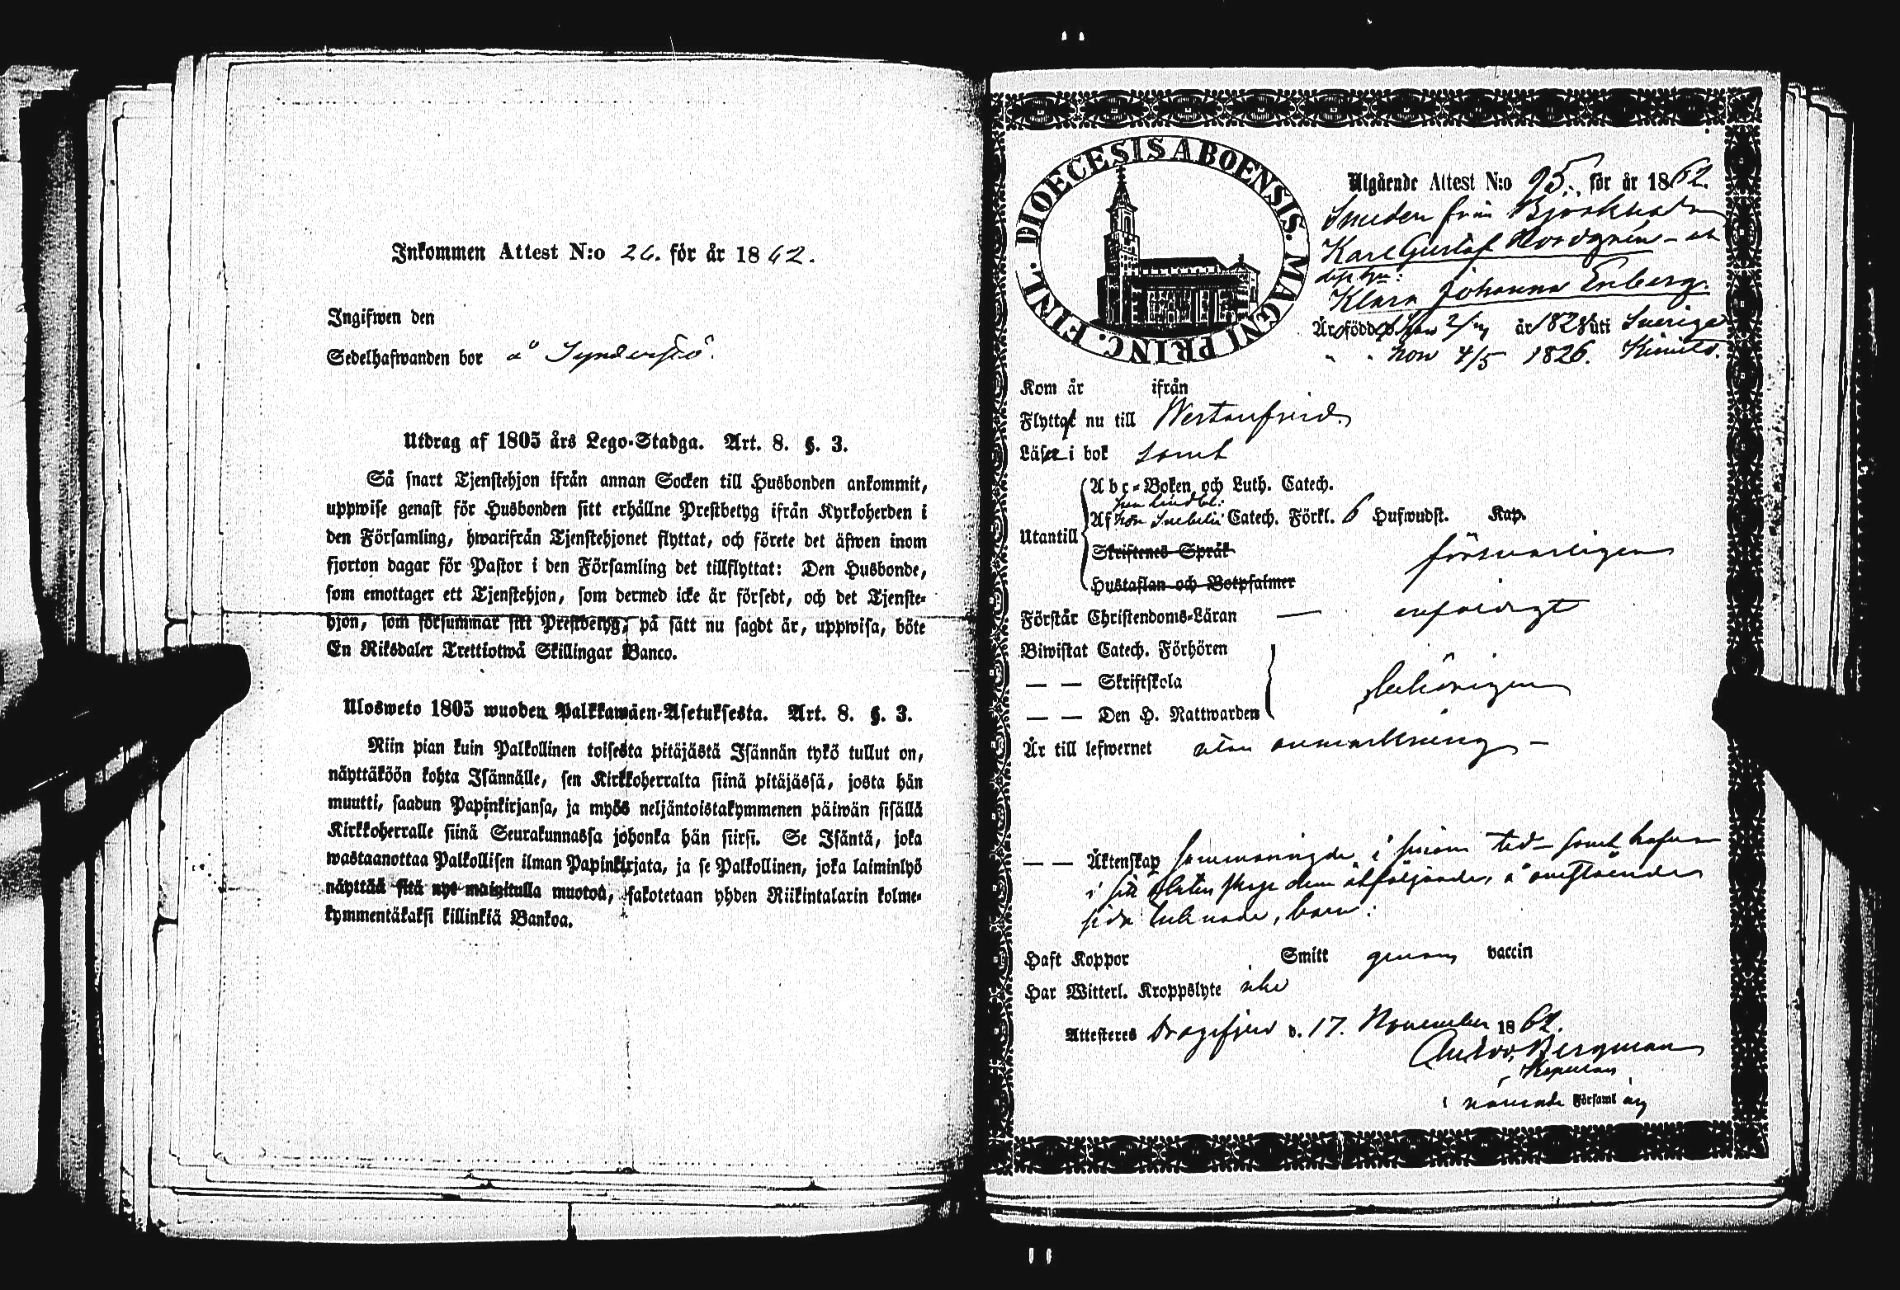 Inkommen Attest N:o 26. för år 1862.
Ingifwen den
Sedelhafwanden bor å
Utdrag af 1805 års Lego-Stadga. Art. 8. §. 3.
Så snart Tjenstehjon ifrån annan Socken till Husbonden ankommit,
uppwise genast för Husbonden sitt erhållne Prestbetyg ifrån Kyrkoherden i
den Församling, hwarifrån Tjenstehjonet flyttat, och förete det äfwen inom
fjorton dagar för Pastor i den Församling det tillflyttat: Den Husbonde,
som emottager ett Tjenstehjon, som dermed icke är försedt, och det Tjenste-
hjon, som försummar sitt Prestbetyg, på sätt nu sagdt är, uppwisa, böte
En Riksdaler Trettiotwå Skillingar Banco.
Ulosweto 1805 wuoden Palkkawäen-Asetuksesta. Art. 8. §. 3.
Niin pian kuin Palkollinen toisesta pitäjästä Isännän tykö tullut on,
näyttäköön kohta Isännälle, sen Kirkkoherralta siinä pitäjässä, josta hän
muutti, saadun Papinkirjansa, ja myös neljäntoistakymmenen päiwän sisällä
Kirkkoherralle siinä Seurakunnassa johonka hän siirsi. Se Isäntä, joka
wastaanottaa Palkollisen ilman Papinkirjata, ja se Palkollinen, joka laiminlyö
näyttää sitä nyt mainitulla muotoa, sakotetaan yhden Riikintalarin kolme-
kymmentäkaksi killinkiä Bankoa.
DIOECESIS ABOENSIS. MAGNI PRINC. FINL.
Utgående Attest N:o 95. för år 1862.
Smeden från Björkboda
Karl Gustaf Nordgrén
Klara Johanna Enberg.
Äro födde han år 1828 uti Sverige
" " hon 4/5 1826. Kimito.
Kom år ifrån
Flytta nu till Westanfjerd.
Läsa i bok samt
Utantill
Abc-Boken och Luth. Catech.
Af hon Svebelii Catech. Förkl. 6 Hufwudst. Kap.
Skriftenes Språk försvarligen
Hustaflan och Botpsalmer
Förstår Christendoms-Läran — enfaldigt
Biwistat Catech. Förhören
— — Skriftskola behörigen
— — Den H. Nattwarden
Är till lefwernet utan anmärkning –
— — Äktenskap sammanvigde i sinom tid samt hafva
i sitt äktenskap dem åtföljande, å omstående
sida tecknade, barn:
Haft Koppor Smitt genom vaccin
Har Witterl. Kroppslyte icke
Attesteras Dragsfjerd d. 17. November 1862.
Bergman
Kapellan
i nämnde Församling